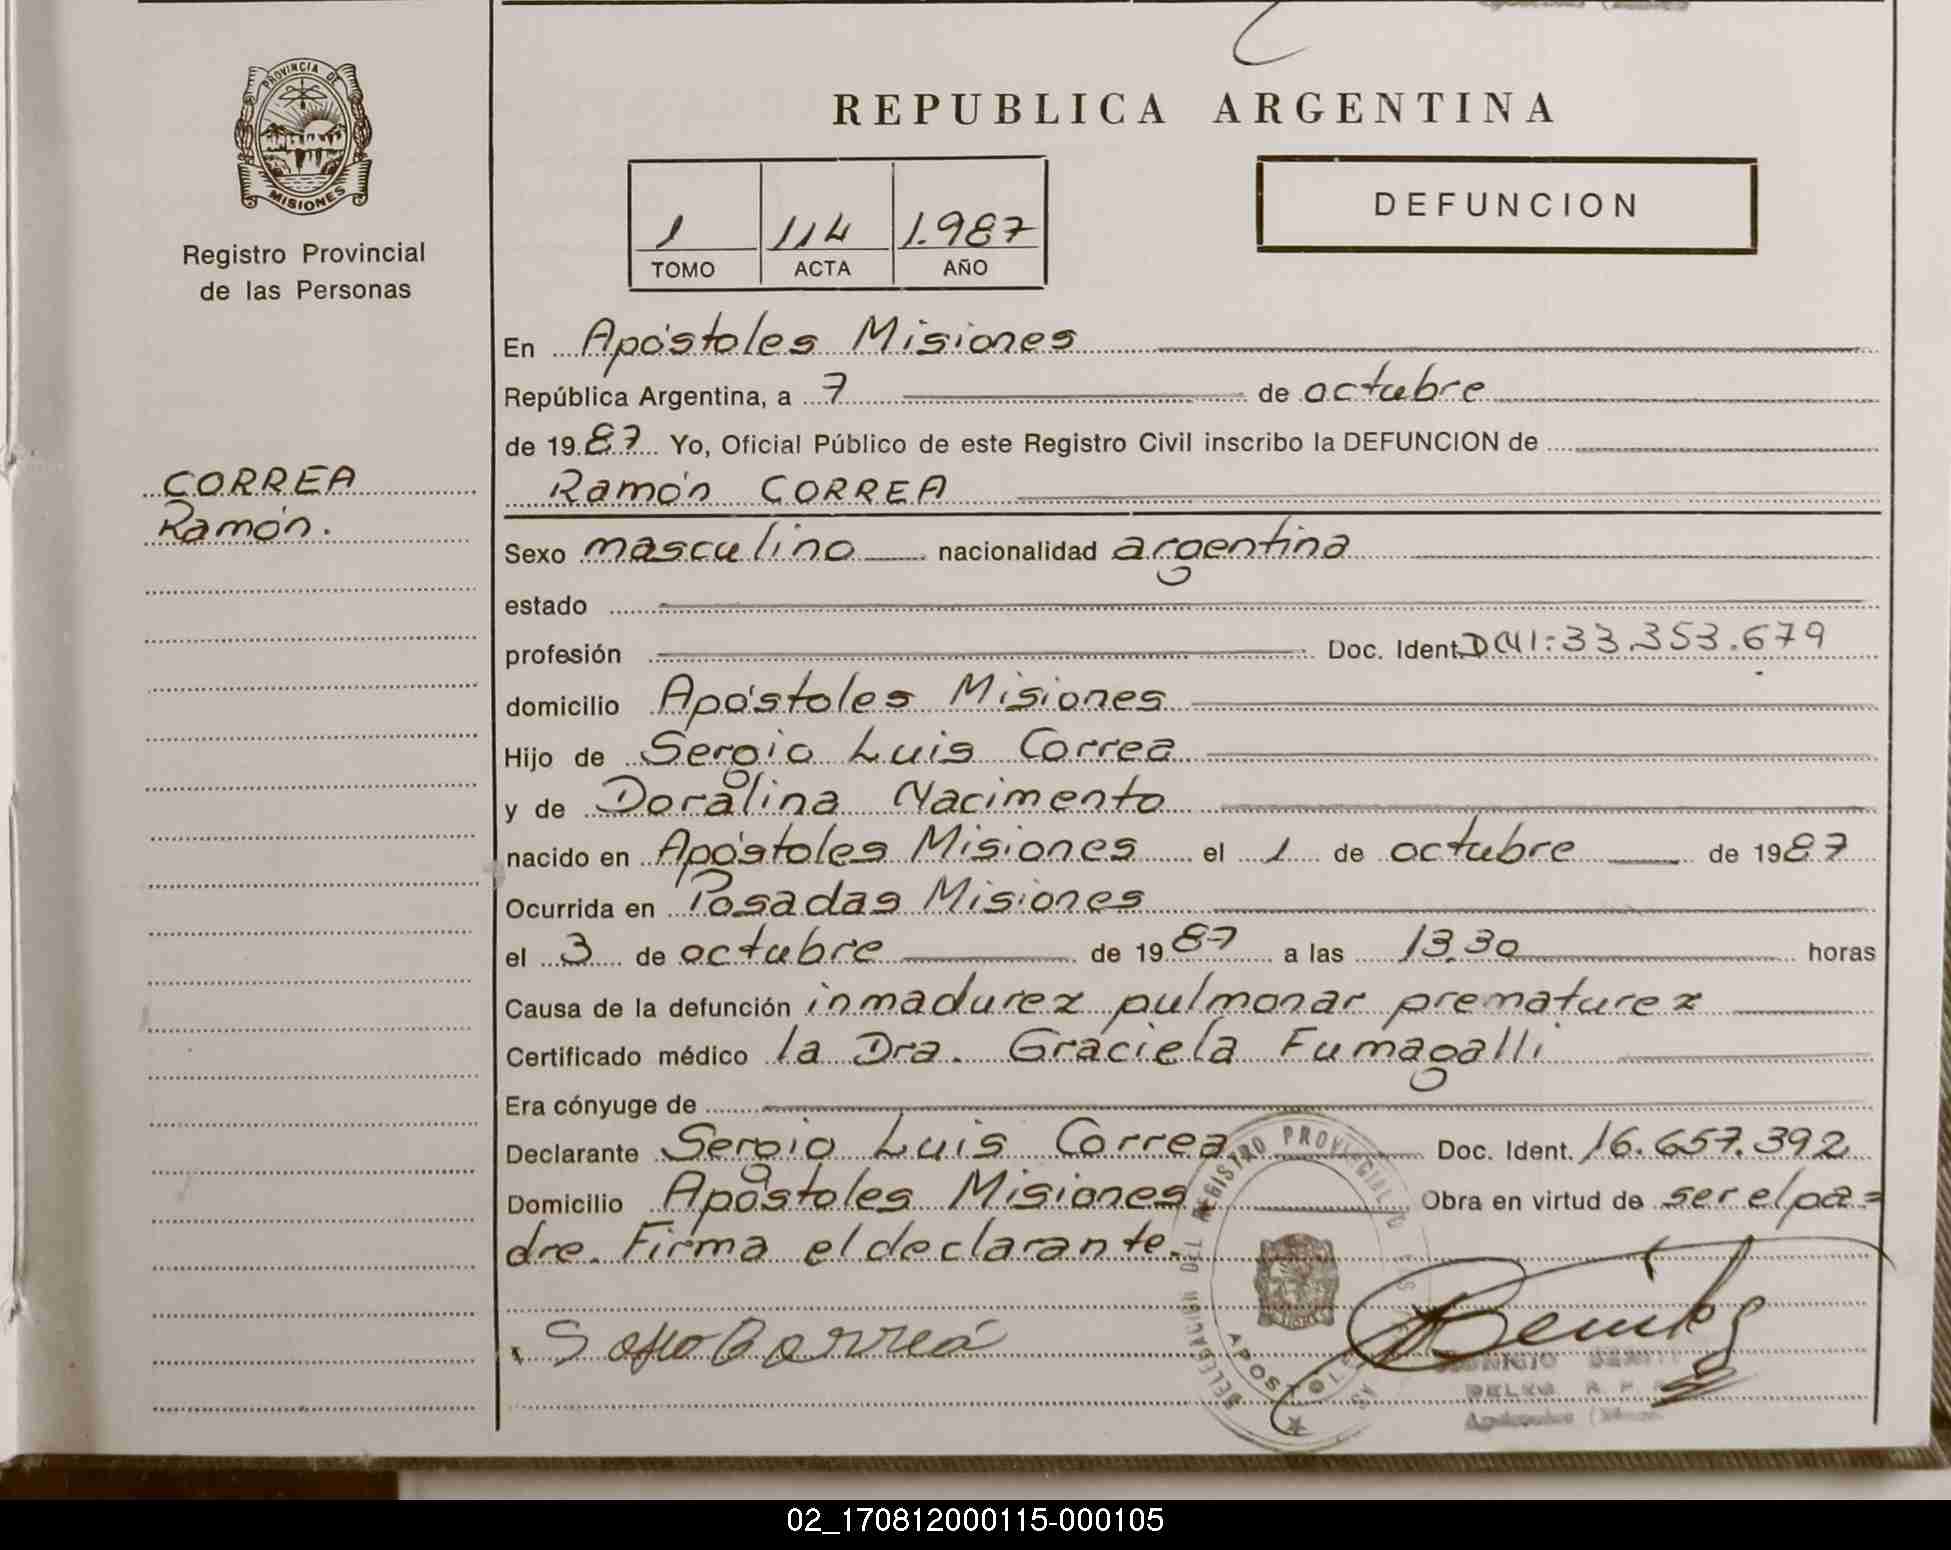 PROVINCIA DE
MISIONES
Registro Provincial
de las Personas
CORREA
Ramón.
REPUBLICA ARGENTINA
1 114 1.987
TOMO ACTA AÑO
DEFUNCION
En Apóstoles Misiones
República Argentina, a 7 de octubre
de 1987 Yo, Oficial Público de este Registro Civil inscribo la DEFUNCION de
Ramón CORREA
Sexo masculino nacionalidad argentina
estado
profesión Doc. Ident. DNI: 33.353.679
domicilio Apóstoles Misiones
Hijo de Sergio Luis Correa
y de Doralina Nacimento
nacido en Apóstoles Misiones el 1 de octubre de 1987
Ocurrida en Posadas Misiones
el 3 de octubre de 1987 a las 13.30 horas
Causa de la defunción inmadurez pulmonar prematurez
Certificado médico la Dra. Graciela Fumagalli
Era cónyuge de
Declarante Sergio Luis Correa Doc. Ident. 16.657.392
Domicilio Apóstoles Misiones Obra en virtud de ser el pa=
dre. Firma el declarante.
DELEGACION DEL REGISTRO PROVINCIAL
02_170812000115-000105